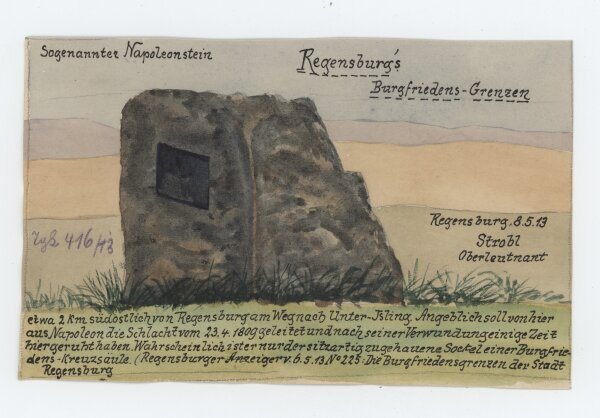 Sogenannter Napoleonstein
Regensburg's
Burgfriedens-Grenzen
Regensburg, 8.5.13
Strobl
Oberleutnant
416/13
etwa 2 km südöstlich von Regensburg am Weg nach Unter-Isling. Angeblich soll von hier
aus Napoleon die Schlacht vom 23.4.1809 geleitet und nach seiner Verwundung einige Zeit
hier geruht haben. Wahrscheinlich ist er nur der sitzartig zugehauene Sockel einer Burgfrie-
dens-Kreuzsäule. (Regensburger Anzeiger v. 6.5.13 No 225: Die Burgfriedensgrenzen der Stadt
Regensburg